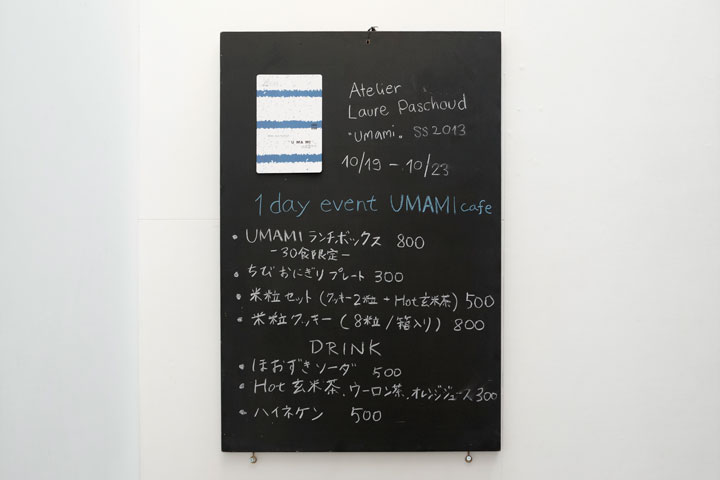 UMAMI
Atelier
Laure Paschoud
"umami" SS2013
10/19 - 10/23
1 day event UMAMI cafe
• UMAMI ランチボックス 800
- 30食限定 -
• ちびおにぎりプレート 300
• 米粒セット (クッキー2粒 + Hot玄米茶) 500
• 米粒クッキー (8粒/箱入り) 800
DRINK
• ほおずきソーダ 500
• Hot 玄米茶、ウーロン茶、オレンジジュース 300
• ハイネケン 500